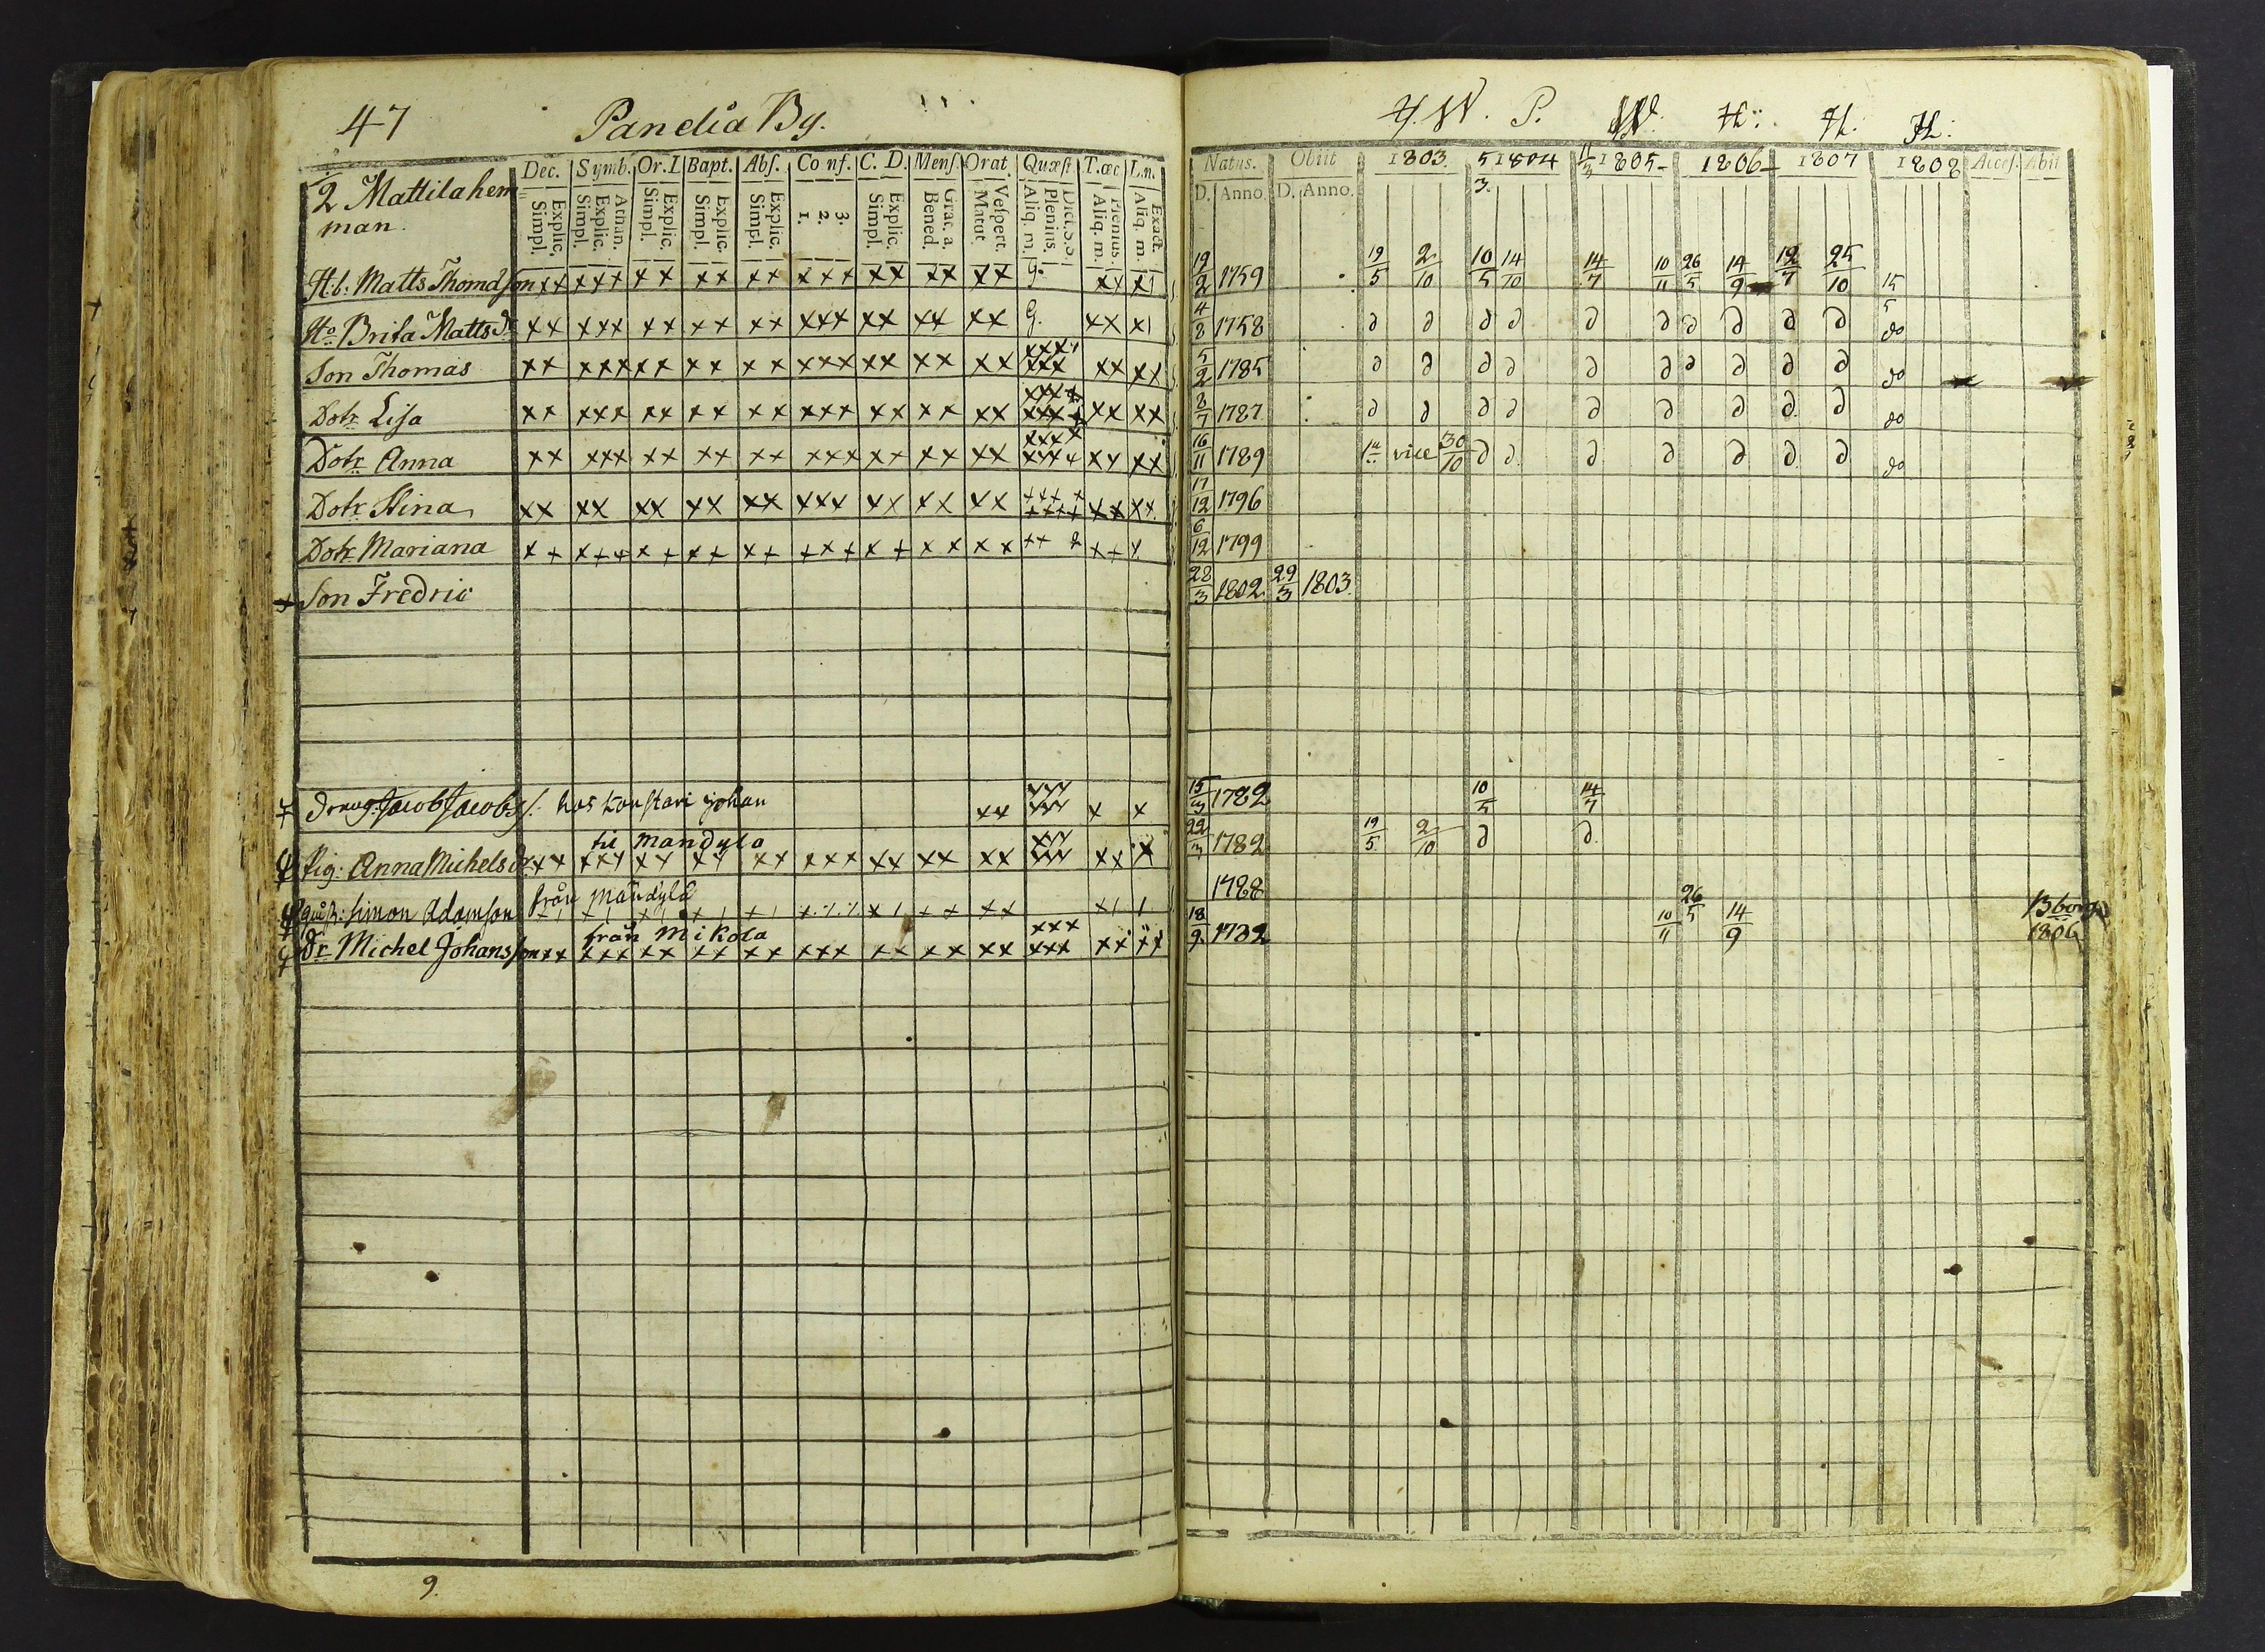 47 Panelia By.
Dec. Symb. Or. I Bapt. Abs. Conf. C. D. Mens. Orat. Quæst T. œc L. n.
2 Mattila hem
man.
Explic. Simpl. Athan. Explic. Simpl. Explic. Simpl. Explic. Simpl. Explic. Simpl. 3. 2. 1. Explic. Simpl. Grat. a. Bened. Vespert. Matut. Dict. S. S. Plenius. Aliq. m. Plenius. Aliq. m. Exact. Aliq. m.
H.b. Matts Thomasson xx xxx xx xx xx xxx xx xx xx g. xx x1
Ho Brita Mattsdr xx xxx xx xx xx xxx xx xx xx g. xx x1
Son Thomas xx xxx xx xx xx xxx xx xx xx xxxx xxx xx xx
Dotr Lisa xx xxx xx xx xx xxx xx xx xx xxxx xxxx xx xx
Dotr Anna xx xxx xx xx xx xxx xx xx xx xxxx xxxx xx xx
Dotr Stina xx xx xx xx xx xxx xx xx xx xxxx xxxx xx xx
Dotr Mariana xx xxx xx xx xx xxx xx xx xx xx xx x
Son Fredric
Dreng. Jacob Jacobss. hos Konstari Johan xx xxx xxx x x
til Mandyla
Pig: Anna Michelsdr xx xxx xx xx xx xxx xx xx xx xxx xxx xx x
från Mandylä
Simon Adamson
från Mikola
Dr Michel Johansson xx xxx xx xx xx xxx xx xx xx xxx xxx xx xx
9.
H. W. P. W. H: H: H:
Natus. Obiit 1803. 5/3. 1804 11/3 1805 1806 1807 1808 Acces. Abii
D. Anno. D. Anno.
19/2 1759 19/5 2/10 10/5 14/10 14/7 10/11 26/5 14/9 12/7 25/10 15/5
4/8 1758 d d d d d d d d d d do
5/2 1785 d d d d d d d d d d do
8/7 1787 d d d d d d d d d do
16/11 1789 1a vice 30/10 d d d d d d d do
17/12 1796
6/12 1799
28/3 1802 29/3 1803.
15/3 1782 10/5 14/7
22/3 1782 19/5 2/10 d d
1788 26/5
18/9 1782 10/11 14/9 Bborg 1806